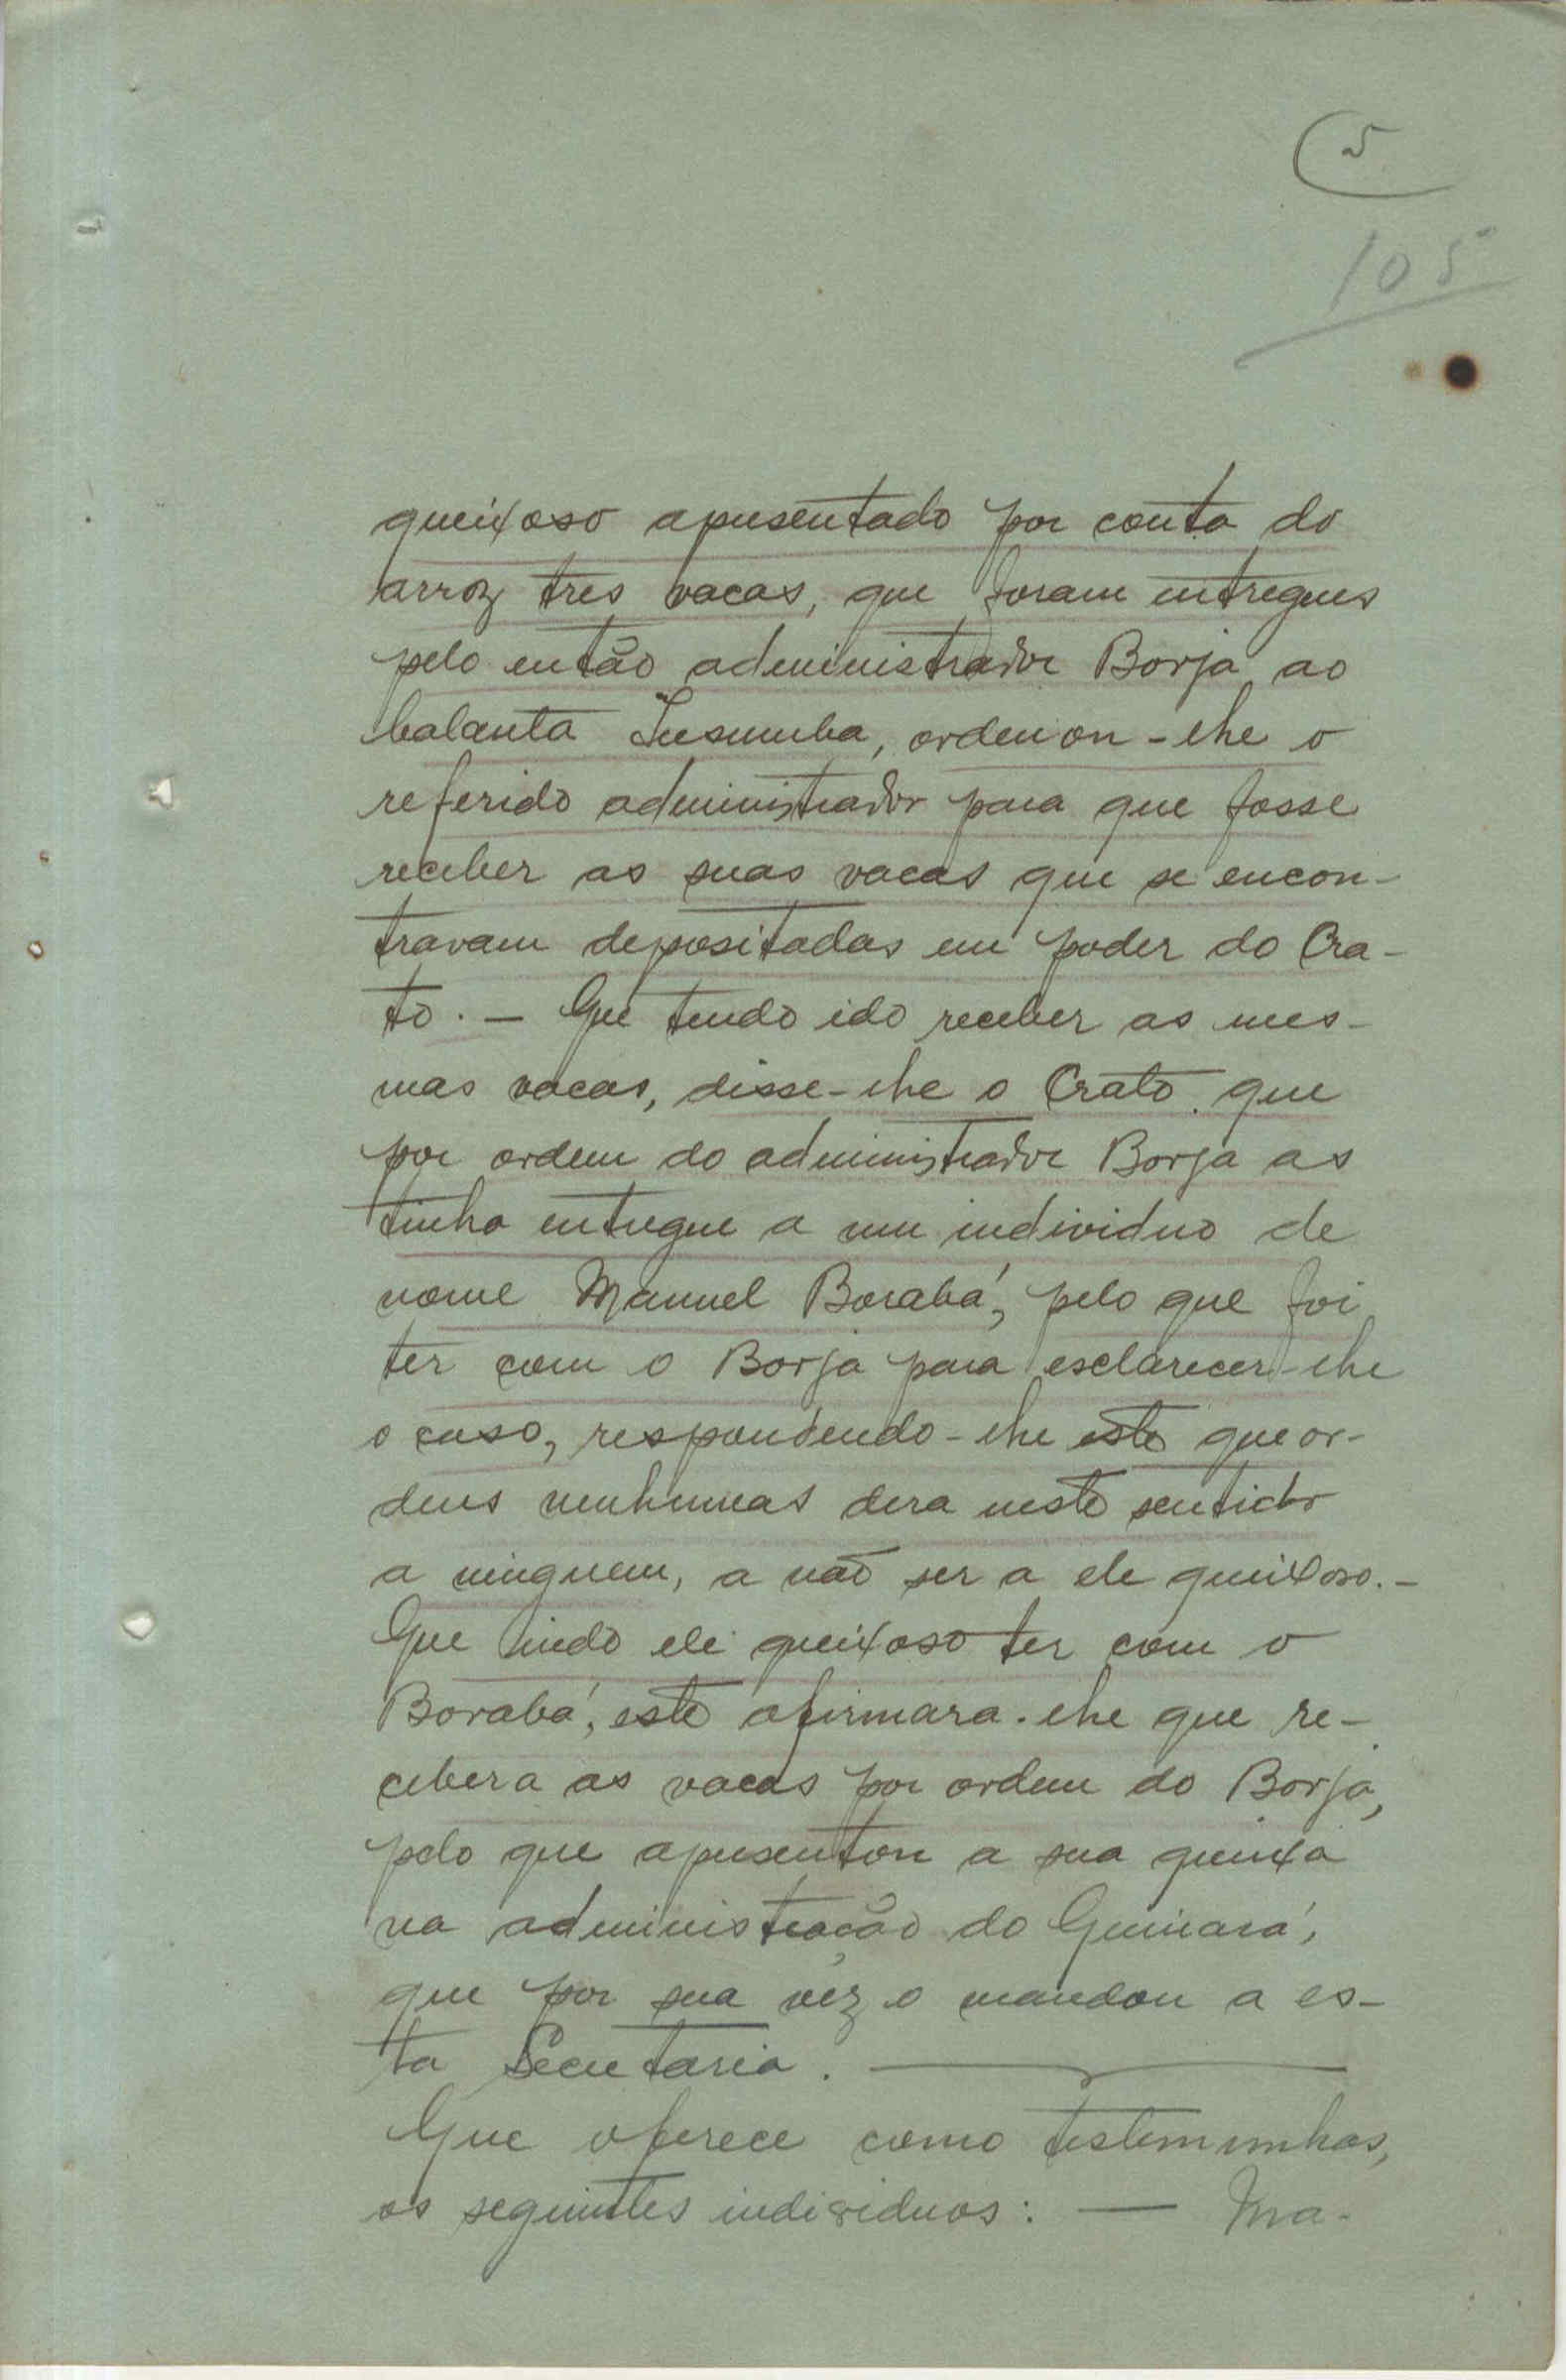 5
105
queixoso apresentado por conta do
arroz tres vacas, que foram entregues
pelo então administrador Borja ao
balanta Insumba, ordenou-lhe o
referido administrador para que fosse
receber as suas vacas que se encon-
travam depositadas em poder do Cra-
to. — Que tendo ido receber as mes-
mas vacas, disse-lhe o Crato que
por ordem do administrador Borja as
tinha entregue a um individuo de
nome Manuel Borabá, pelo que foi
ter com o Borja para esclarecer-lhe
o caso, respondendo-lhe este que or-
dens nenhumas dera neste sentido
a ninguem, a não ser a ele queixoso. —
Que indo ele queixoso ter com o
Borabá, este afirmara-lhe que re-
cebera as vacas por ordem do Borja,
pelo que apresentou a sua queixa
na administração do
que por sua vez o mandou a es-
ta Secretaria. —
Que oferece como testemunhas,
os seguintes individuos: — Ma-